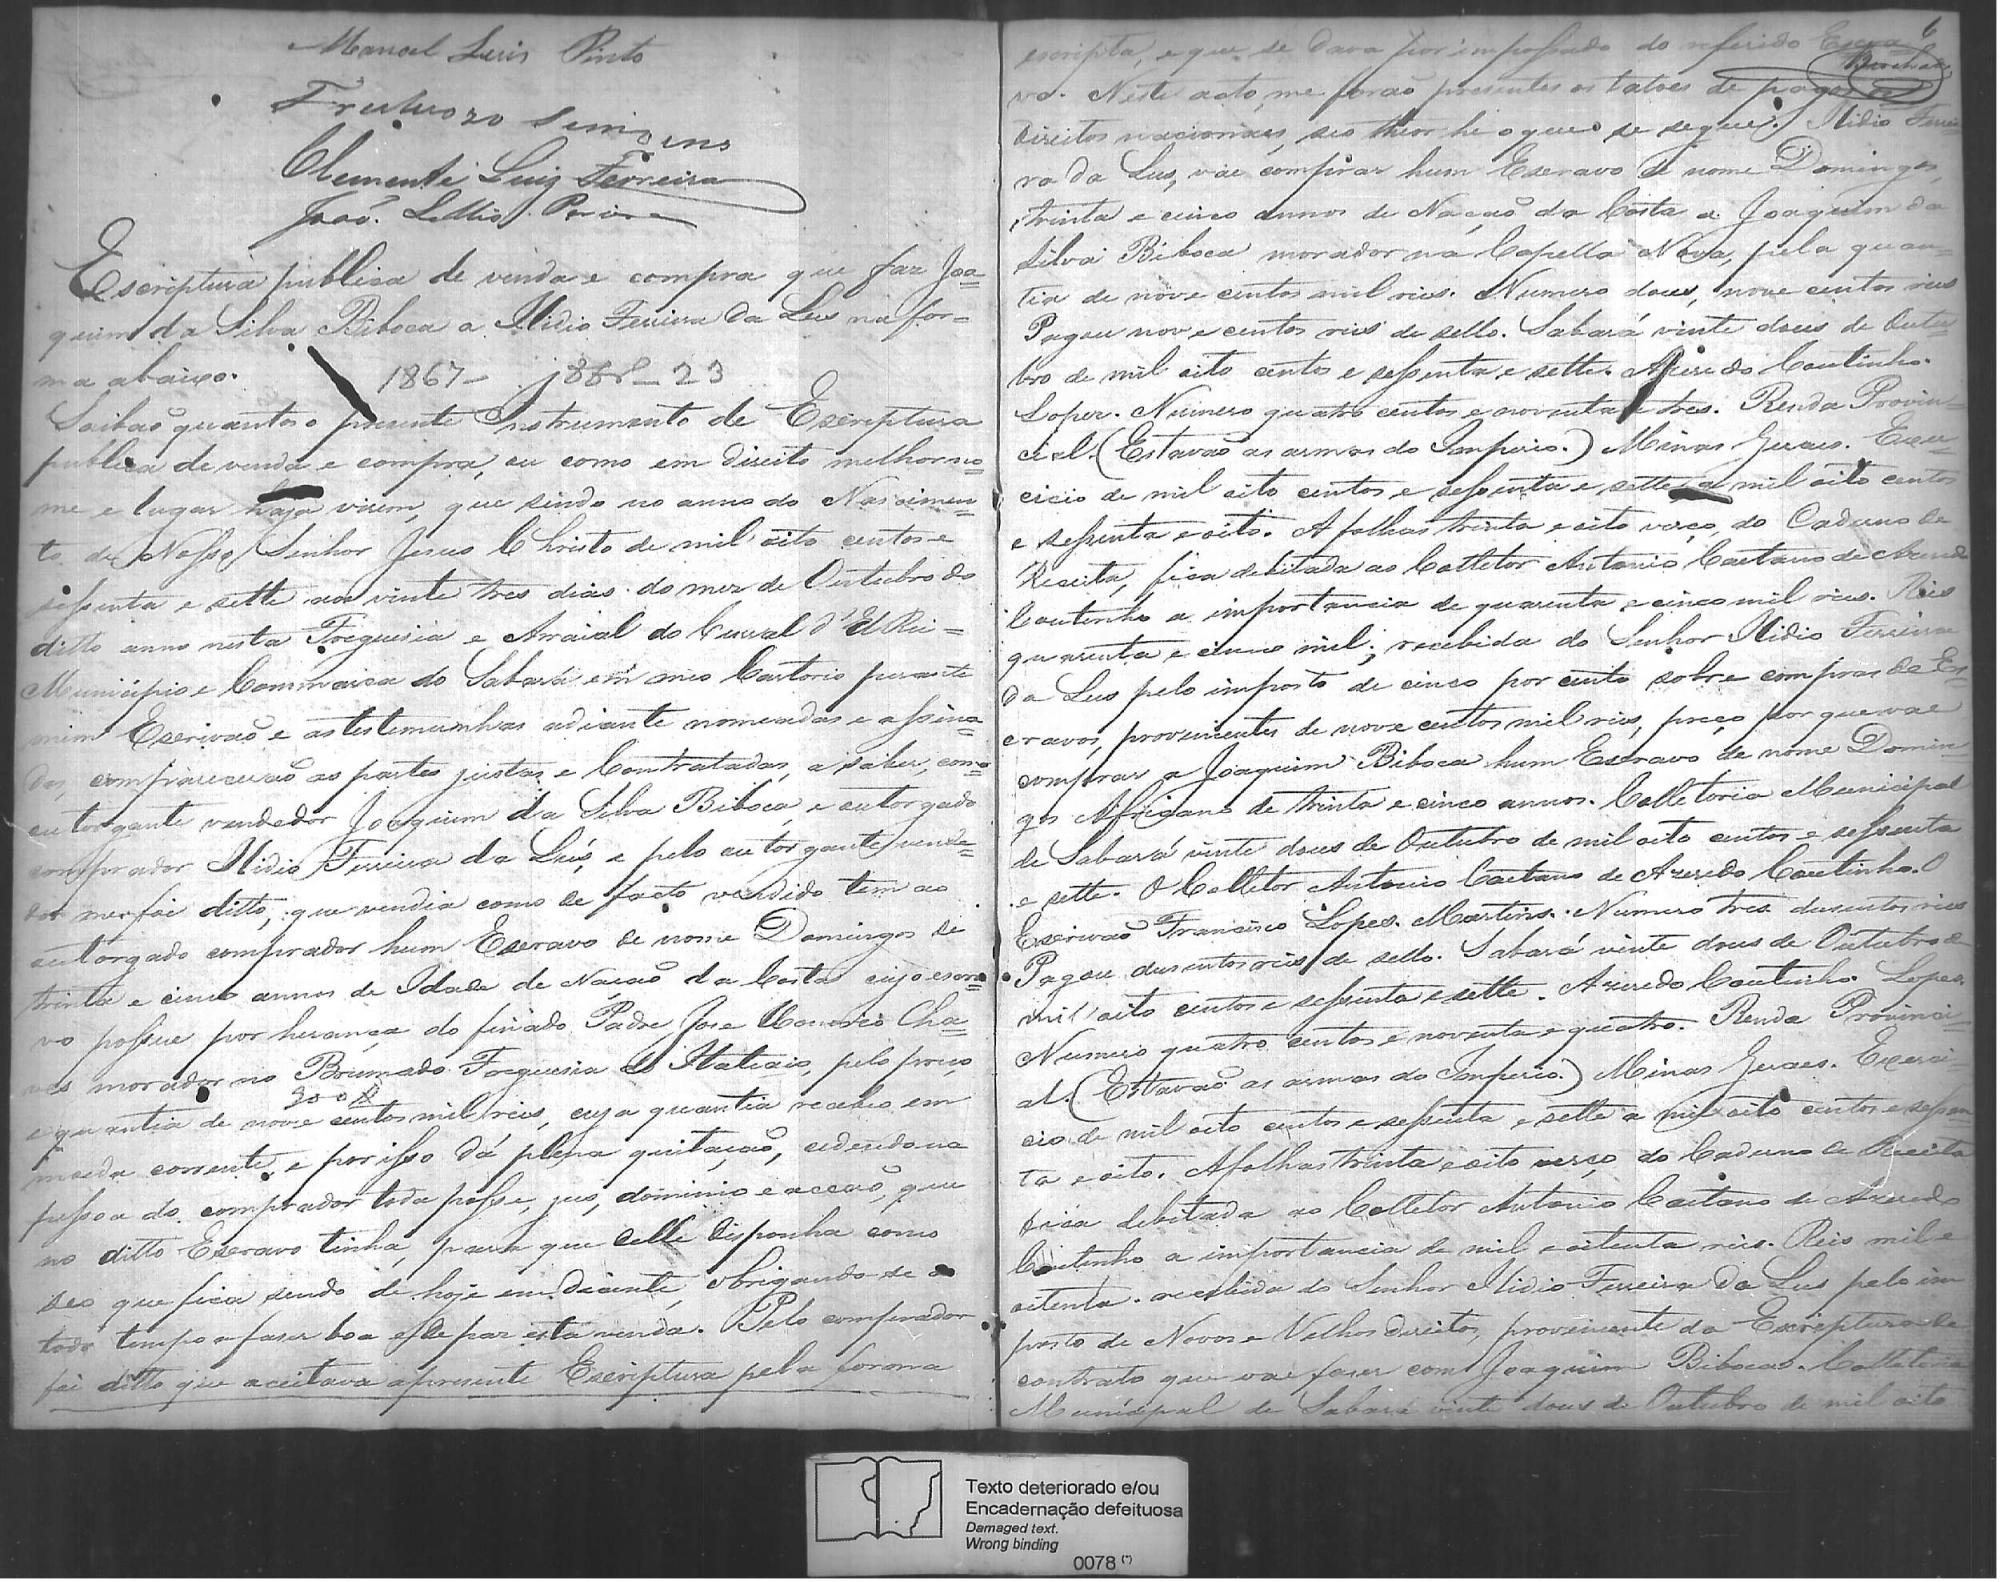 Manoel Luis Pinto
Fructuozo Simoens
Clemente Luiz Ferreira
João Pereira
Escriptura publica de venda e compra que faz Joa=
quim da Silva Biboca a Ilidio Ferreira da Lus na for=
ma abaixo.
1867- 23
Saibaõ quantos o presente Instrumento de Escriptura
publica de venda e compra, ou como em direito melhor no=
me e lugar haja virem, que sendo no anno do Nascimen=
to de Nosso Senhor Jesus Christo de mil oito centos e
sessenta e sette aos vinte tres dias do mez de Outubro do
ditto anno nesta Freguesia e Arraial do Curral d'El Rei=
Municipio e Commarca do Sabará em meo Cartorio perante
mim Escrivaõ e as testemunhas adiante nomeadas e assina=
das, compareceraõ as partes justas e Contratadas, a saber, como
outorgante vendedor Joaquim da Silva Biboca, e outorgado
comprador Ilidio Ferreira da Lus, e pelo outorgante vende=
dor me foi ditto, que vendia como de facto vendido tem ao
outorgado comprador hum Escravo de nome Domingos de
trinta e cinco annos de Idade de Naçaõ da Costa cujo escra=
vo possue por herança do finado Padre Jose Honorio Cha=
ves morador no Brumado Freguesia de Itatiaio, pelo preco
900$
e quantia de nove centos mil reis, cuja quantia recebeo em
moeda corrente, e por isso dá plena quitaçaõ, cedendo na
pessoa do comprador toda posse, jus, dominio e accaõ, que
no ditto Escravo tinha, para que delle disponha como
seo que fica sendo de hoje em diante, obrigando-se a
todo tempo a faser boa e de pax esta venda. Pelo comprador
foi ditto que aceitava a presente Escriptura pela forma
6
escripta, e que se dava por impossado do referido Escra=
vo. Neste acto, me foraõ presentes os taloes de pago
direitos nacionaes, seo theor he o que se segue. Ilidio Ferrei=
ra da Lus, vae comprar hum Escravo de nome Domingos,
trinta e cinco annos de Naçaõ da Costa a Joaquim da
Silva Biboca morador na Capella Nova, pela quan=
tia de nove centos mil reis. Numero dous, nove centos reis
Pagou nove centos reis de sello. Sabará vinte dous de Outu=
bro de mil oito centos e sessenta e sette. Azeredo Coutinho.
Lopes. Numero quatro centos e noventa e tres. Renda Provin=
cial. (Estavaõ as armas do Imperio.) Minas Geraes. Exer=
cicio de mil oito centos e sessenta e sette a mil oito centos
e sessenta e oito. A folhas trinta e oito verço, do Caderno de
Receita, fica debitada ao Colletor Antonio Caetano de Azeredo
Coutinho a importancia de quarenta e cinco mil reis. Reis
quarenta e cinco mil; recebida do Senhor Ilidio Ferreira
da Lus pelo imposto de cinco por cento sobre compras de Es=
cravos, provenientes de nove centos mil reis, preço, por que vae
comprar a Joaquim Biboca hum Escravo de nome Domin=
gos Africano de trinta e cinco annos. Colletoria Municipal
de Sabará vinte dous de Outubro de mil oito centos e sessenta
e sette. O Colletor Antonio Caetano de Azeredo Coutinho. O
Escrivaõ Francisco Lopes Martins. Numero tres dusentos reis
Pagou dusentos reis de sello. Sabará vinte dous de Outubro de
mil oito centos e sessenta e sette. Azeredo Coutinho. Lopes.
Numero quatro centos e noventa e quatro. Renda Provinci=
al. (Estavaõ as armas do Imperio.) Minas Geraes. Exerci=
cio de mil oito centos e sessenta e sette a mil oito centos e sessen=
ta e oito. A folhas trinta e oito verço do Caderno de Receita
fica debitada ao Colletor Antonio Caetano de Azeredo
Coutinho a importancia de mil e oitenta reis. Reis mil e
oitenta. recebida do Senhor Ilidio Ferreira da Lus pelo im
posto de Novos e Velhos direitos, proveniente da Escriptura de
contrato que vae faser com Joaquim Biboca. Colletoria
Municipal de Sabará vinte dous de Outubro de mil oito
Texto deteriorado e/ou
Encadernação defeituosa
Damaged text.
Wrong binding
0078 (*)